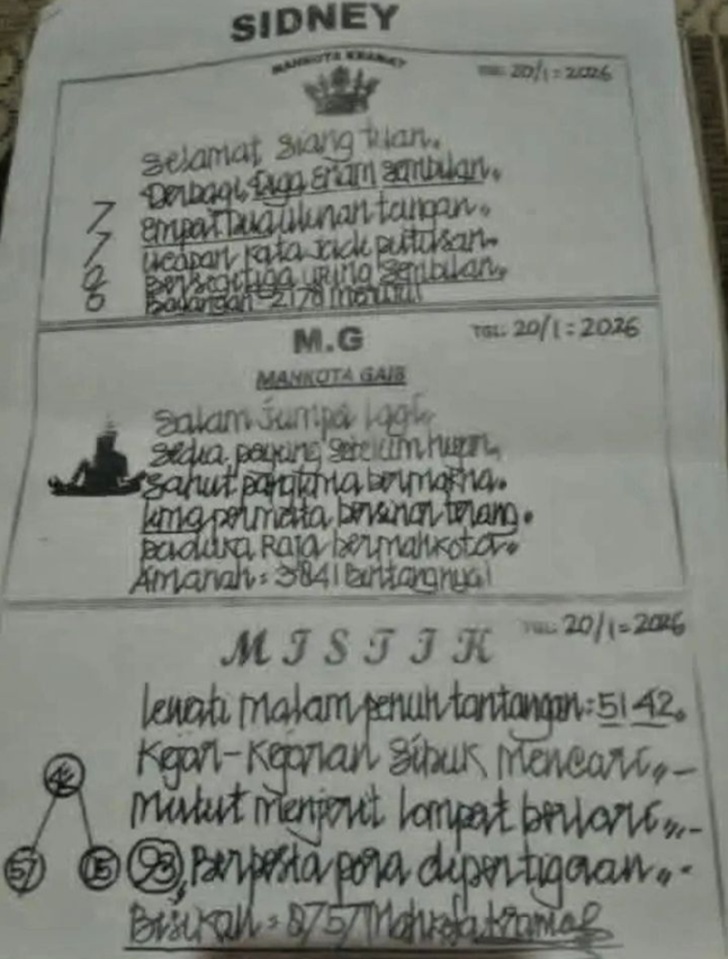 SIDNEY
MAHKOTA KRAMAT
TGL: 20/1=2026
Selamat siang tuan.
Berbagi, tiga enam sembilan.
7 empat Dua uluran tangan.
7 ucapan kata jadi putusan.
bersegi tiga ujung sembilan.
6 Bayangan 2178
M.G
TGL: 20/1=2026
MAHKOTA GAIB
Salam Jumpa lagi,
sedia payung sebelum hujan,
sahut panglima bermakna.
lima permata bersinar terang.
paduka Raja bermahkota.
Amanah: 3841 Bintangnya!
MISTIK
TGL: 20/1=2026
lewati malam penuh tantangan: 5142.
Kejar-Kejaran sibuk mencari,,-
mulut menjerit lompat berlari,,,-
57 15 93, Berpesta pora dipertigaan,,-
Bisikan = 8757 Mahkota kramat